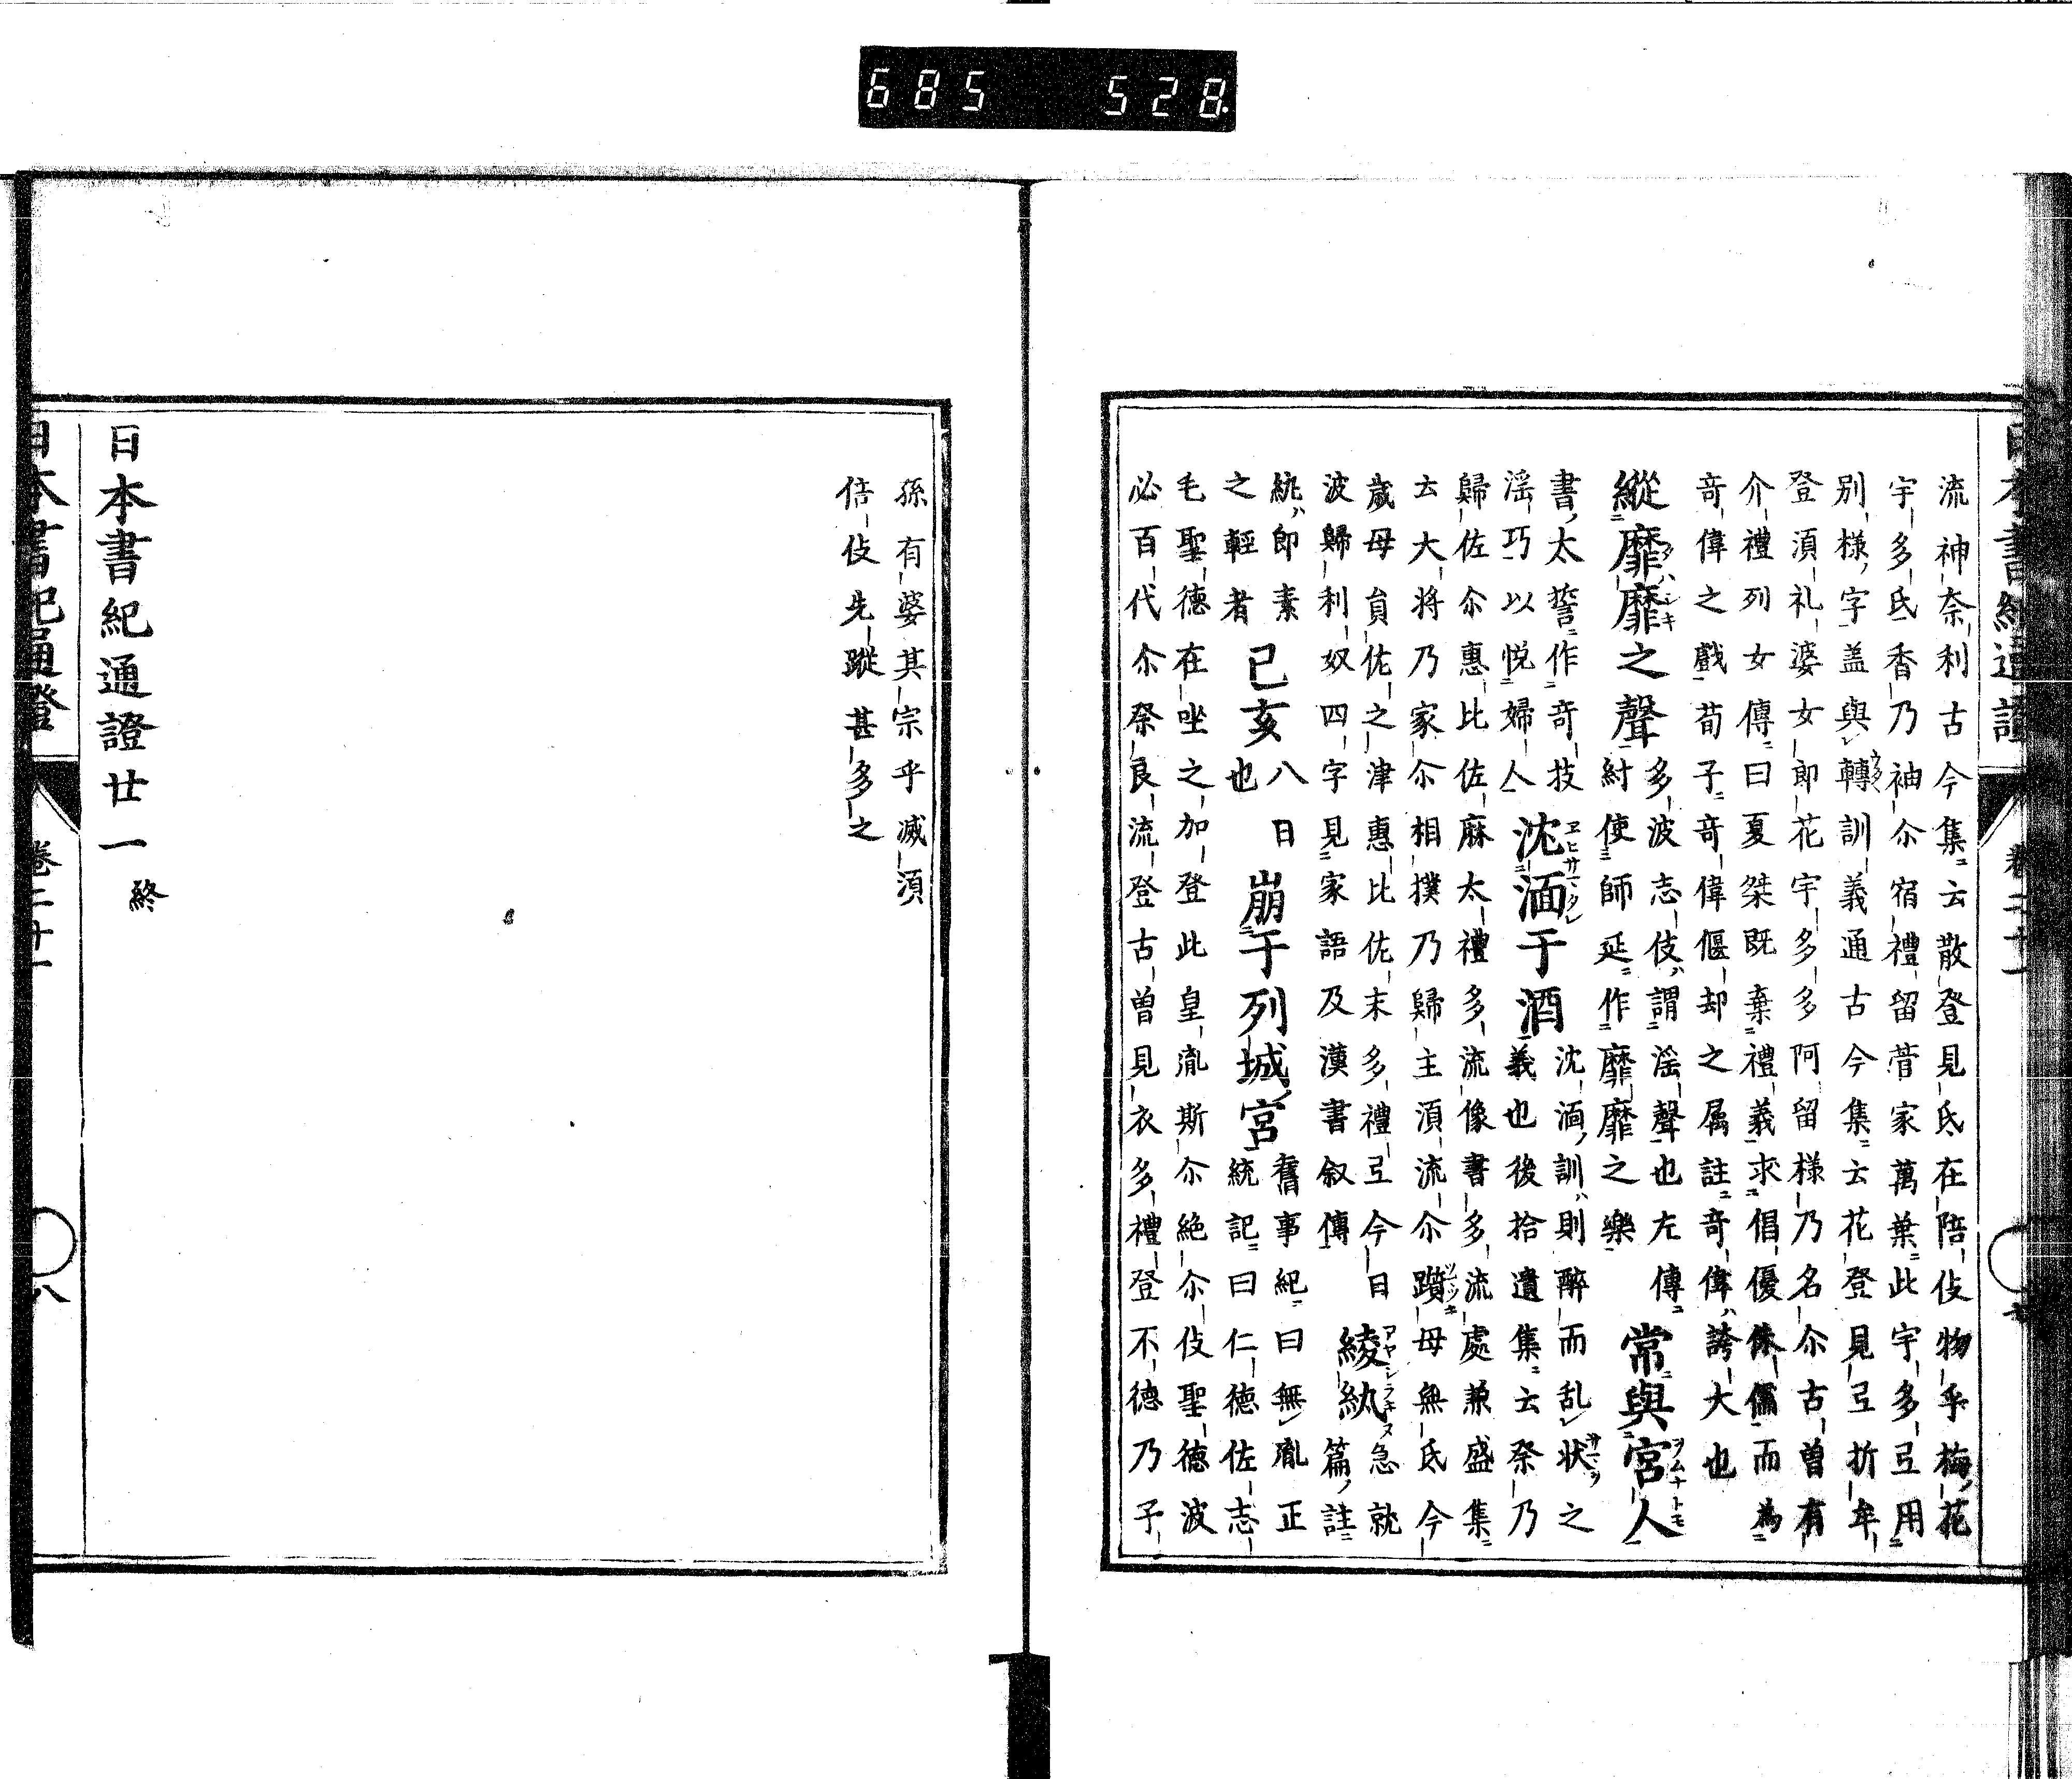 日本書紀通證 卷二十一
流神奈利古今集ニ云散登見氐在陪伎物乎梅ノ花
宇多氐香乃袖尒宿禮留菅家萬葉ニ此宇多弖用ニ
別様ノ字盖與レ轉訓義通古今集ニ云花登見弖折牟
登湏礼婆女郎花宇多多阿留様乃名尒古曽有
介禮列女傳ニ曰夏桀既棄ニ禮義一求ニ倡優侏儒一而為ニ
奇偉之戲一荀子ニ奇偉偃却之属註ニ奇偉ハ誇大也
縱ニ靡靡之聲一
多波志伎ハ謂ニ淫聲一也左傳ニ
紂使ニ師延ニ作ニ靡靡之樂一
常ニ與ニ宮人一
書ノ太誓ニ作ニ奇技
淫巧以悦ニ婦人一
沈ニ湎于酒一
沈湎ノ訓ハ則醉而乱レ状之
義也後拾遺集ニ云祭乃
歸佐尒惠比佐麻太禮多流像書多流處兼盛集ニ
去大将乃家尒相撲乃歸主湏流尒躓母無氐今
歳母負佐之津惠比佐末多禮弖今日
波歸利奴四字見ニ家語及漢書叙傳一
綾紈
急就
篇ノ註ニ
紈ハ即素
之輕者
己亥
八日
也
崩ニ于列城ノ宮一
舊事紀ニ曰無レ胤正
統記ニ曰仁德佐志
毛聖德在唑之加登此皇胤斯尒絶尒伎聖德波
必百代尒祭良流登古曽見衣多禮登不德乃子
孫有婆其宗乎滅湏
倍伎先蹤甚多之
日本書紀通證廿一 終
日本書紀通證 卷二十一 八
685 528